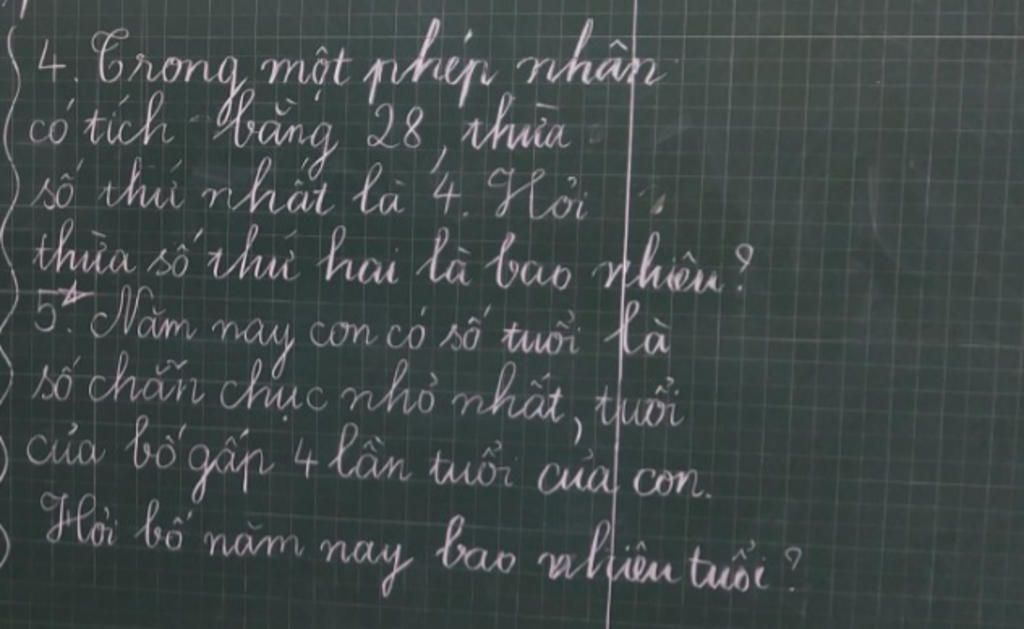 4. Trong một phép nhân
có tích bằng 28, thừa
số thứ nhất là 4. Hỏi
thừa số thứ hai là bao nhiêu?
5*. Năm nay con có số tuổi là
số chẵn chục nhỏ nhất, tuổi
của bố gấp 4 lần tuổi của con.
Hỏi bố năm nay bao nhiêu tuổi?